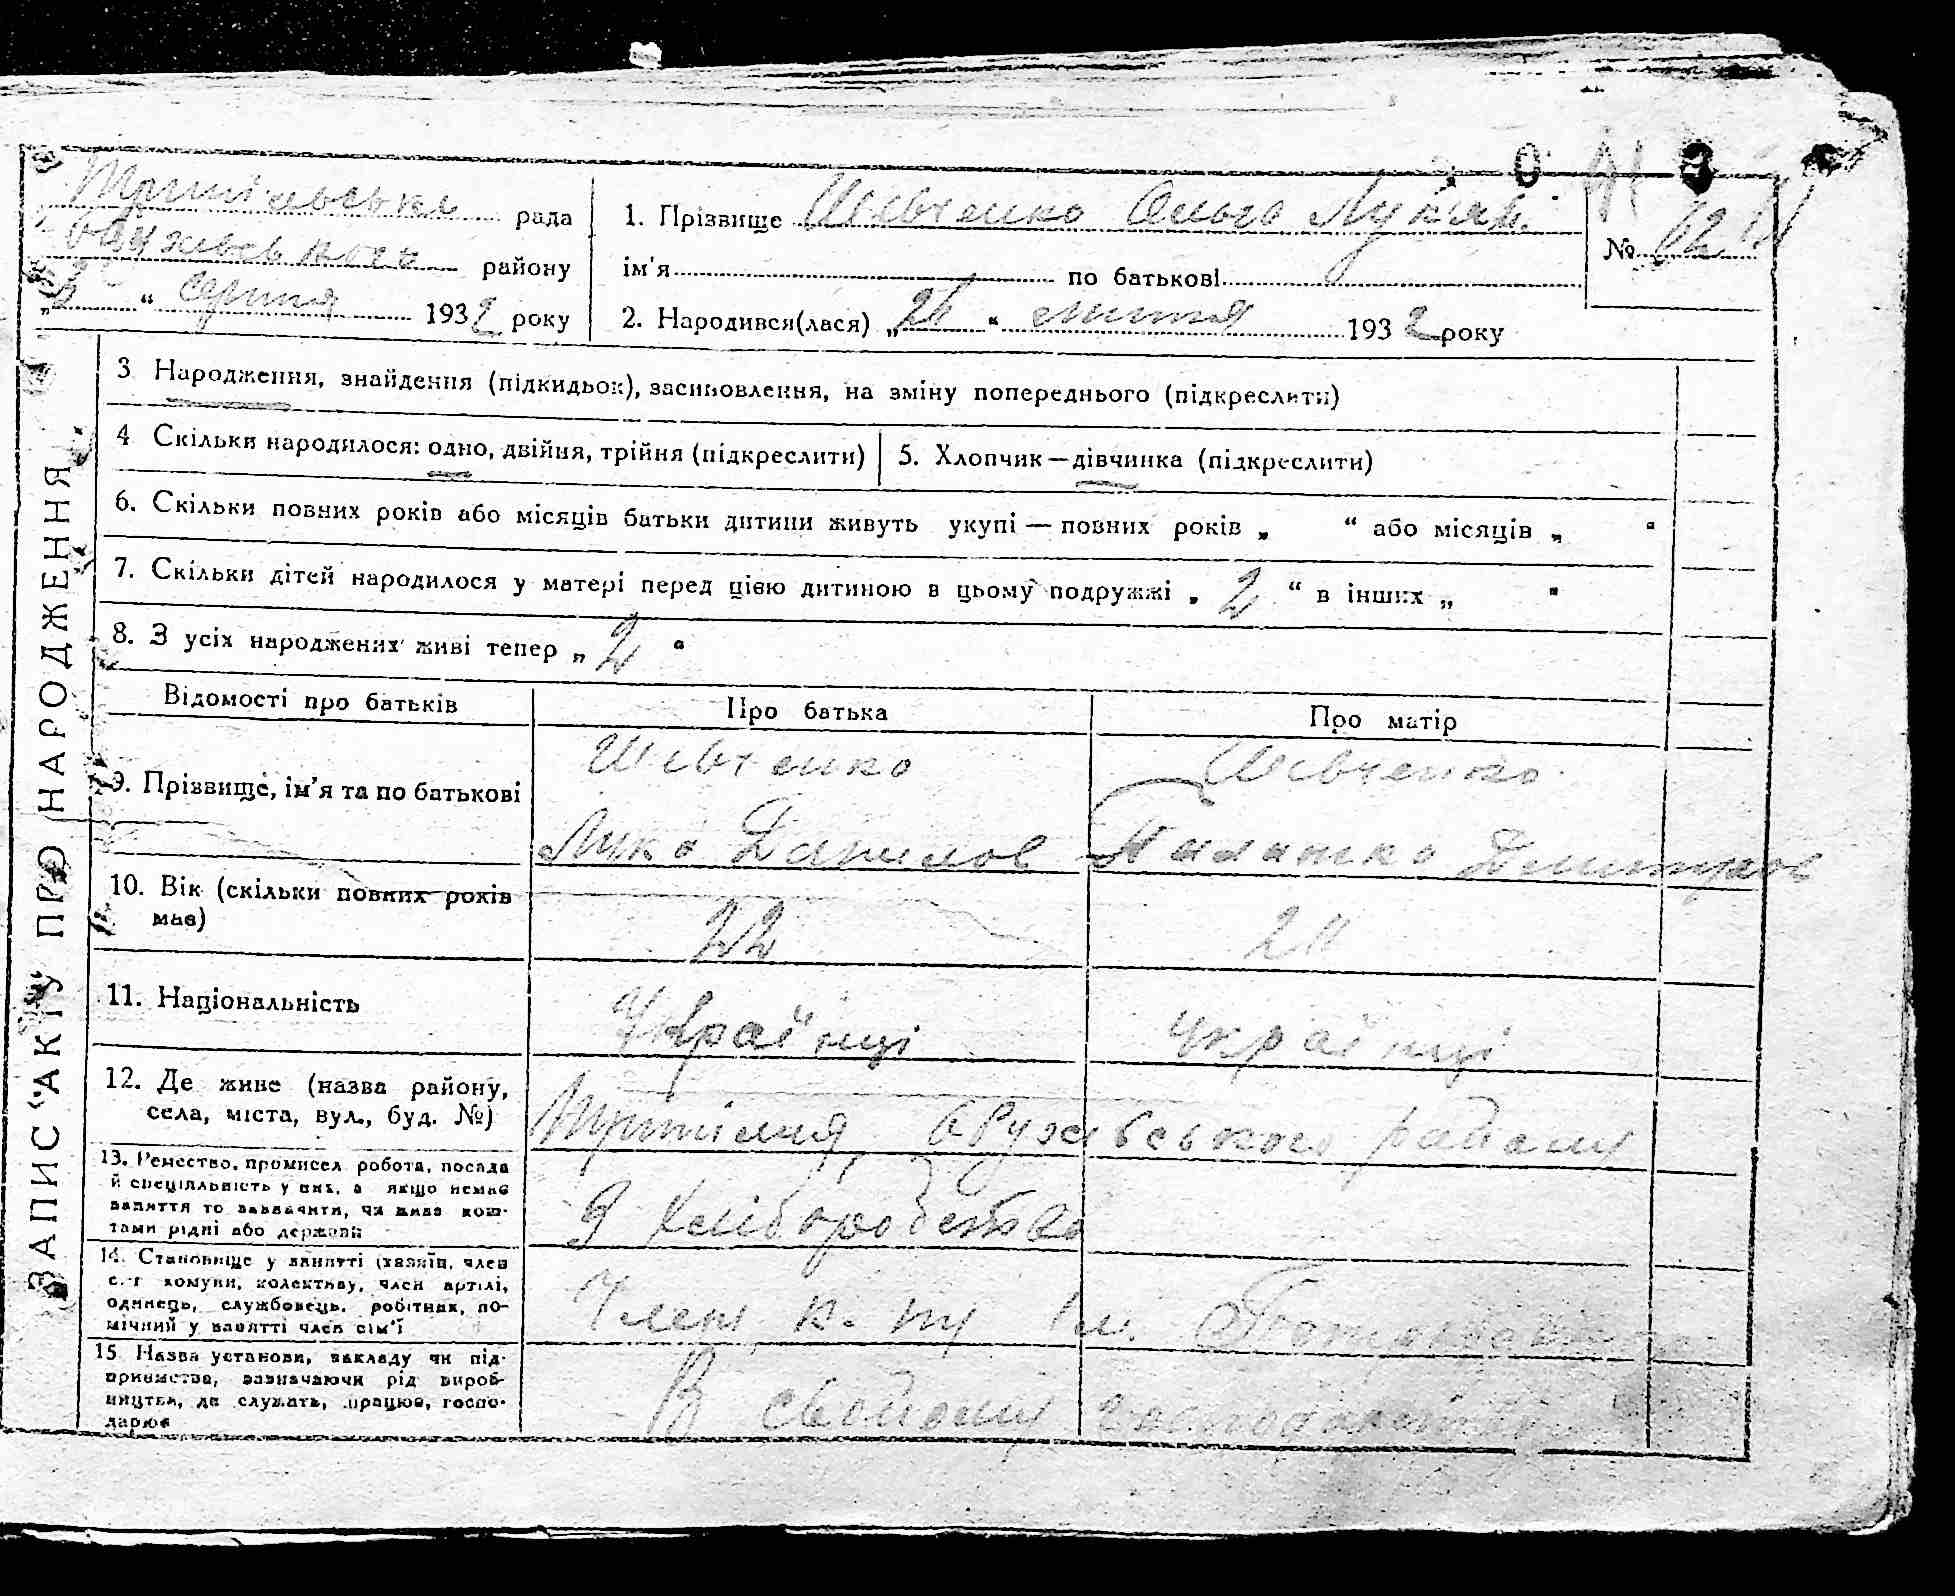 ЗАПИС "АКТУ" ПРО НАРОДЖЕННЯ
рада
району
„3“ серпня 1932 року
1. Прізвище Шевченко Ольга Лук'ян.
ім'я по батькові
2. Народився(лася) „ “ липня 1932 року
№
3 Народження, знайдення (підкидьок), засиновлення, на зміну попереднього (підкреслити)
4 Скільки народилося: одно, двійня, трійня (підкреслити)
5. Хлопчик—дівчинка (підкреслити)
6. Скільки повних років або місяців батьки дитини живуть укупі — повних років „ “ або місяців „ “
7. Скільки дітей народилося у матері перед цією дитиною в цьому подружжі „ 2 “ в інших „ “
8. З усіх народжених живі тепер „ 2 “
Відомості про батьків
Про батька
Про матір
9. Прізвище, ім'я та по батькові
Шевченко
Лука Данилов
Шевченко
10. Вік (скільки повних років
має)
22
11. Національність
Українці
українці
12. Де живе (назва району,
села, міста, вул., буд. №)
району
13. Ремество, промисел робота, посада
й спеціяльність у них, а якщо немає
заняття то зазначити, чи живе кош-
тами рідні або держави
14. Становище у занятті (хазяїн, член
с.-г комуни, колективу, член артілі,
одинець, службовець, робітник, по-
мічний у занятті член сім'ї
Член
15 Назва установи, закладу чи під-
приємства, зазначаючи рід вироб-
ництва, де служать, працює, госпо-
дарює
В свойому господарстві